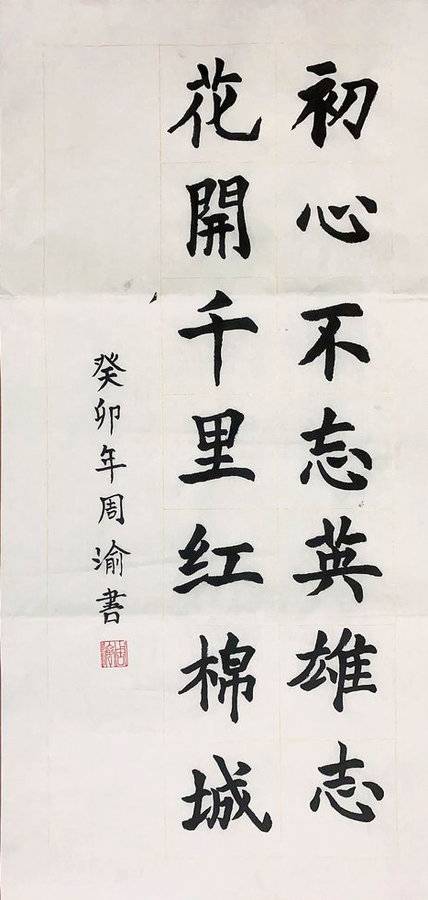 初心不志英雄志
花開千里红棉城
癸卯年周渝書
周渝